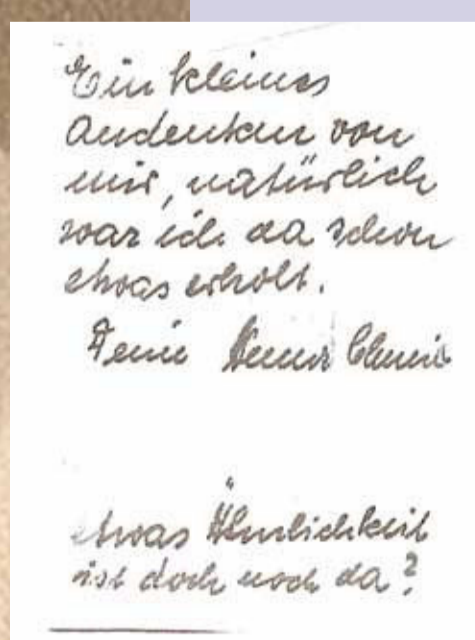 Ein kleines
Andenken von
mir, natürlich
war ich da schon
etwas erholt.
etwas Ähnlichkeit
ist doch noch da?